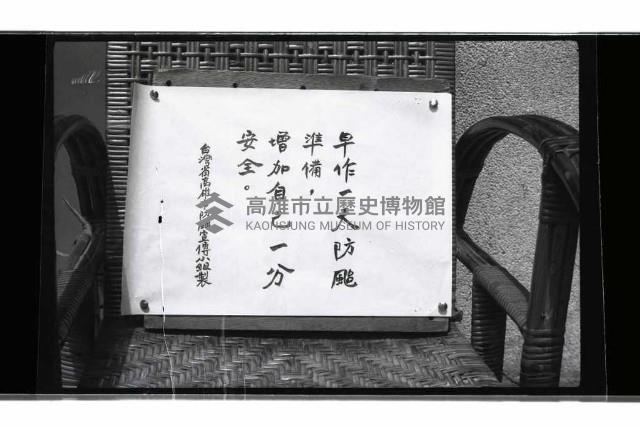 早作一天防颱
準備，
增加自己一分
安全。
台灣省高雄防颱宣傳小組製
高雄市立歷史博物館
KAOHSIUNG MUSEUM OF HISTORY